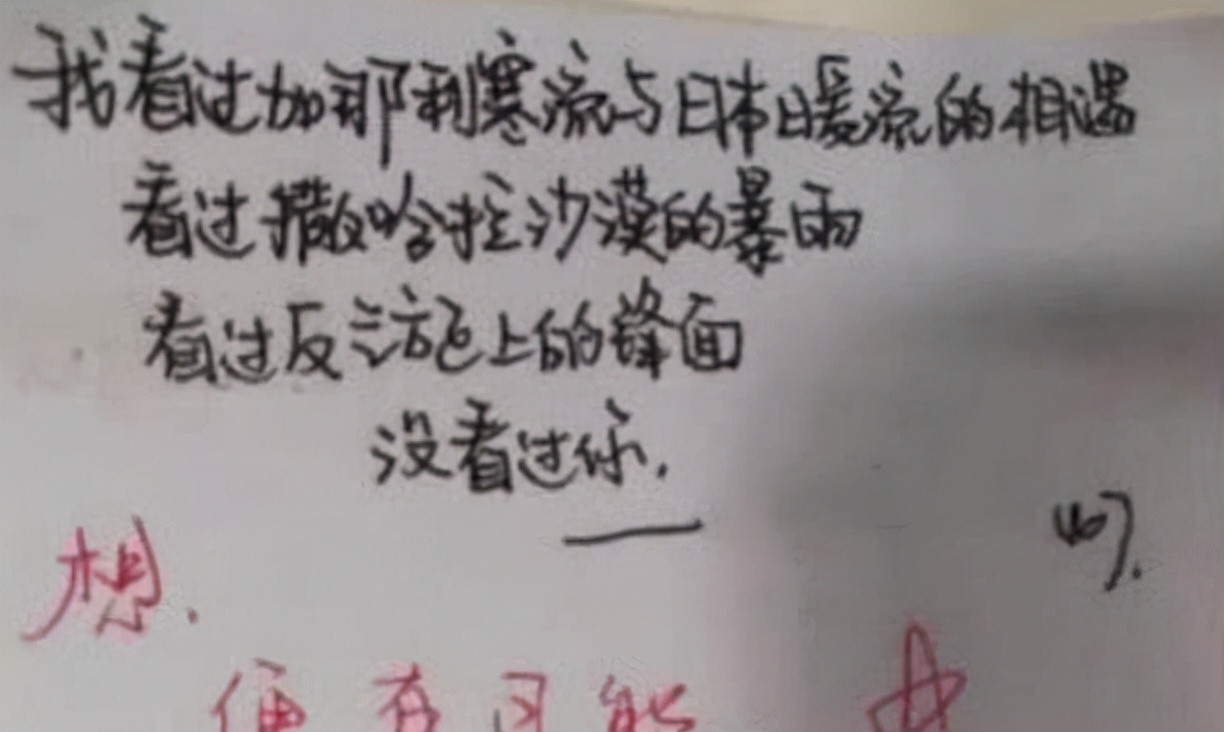 我看过加那利寒流与日本暖流的相遇
看过撒哈拉沙漠的暴雨
看过反气旋上的锋面
没看过你.
想.
便有可能